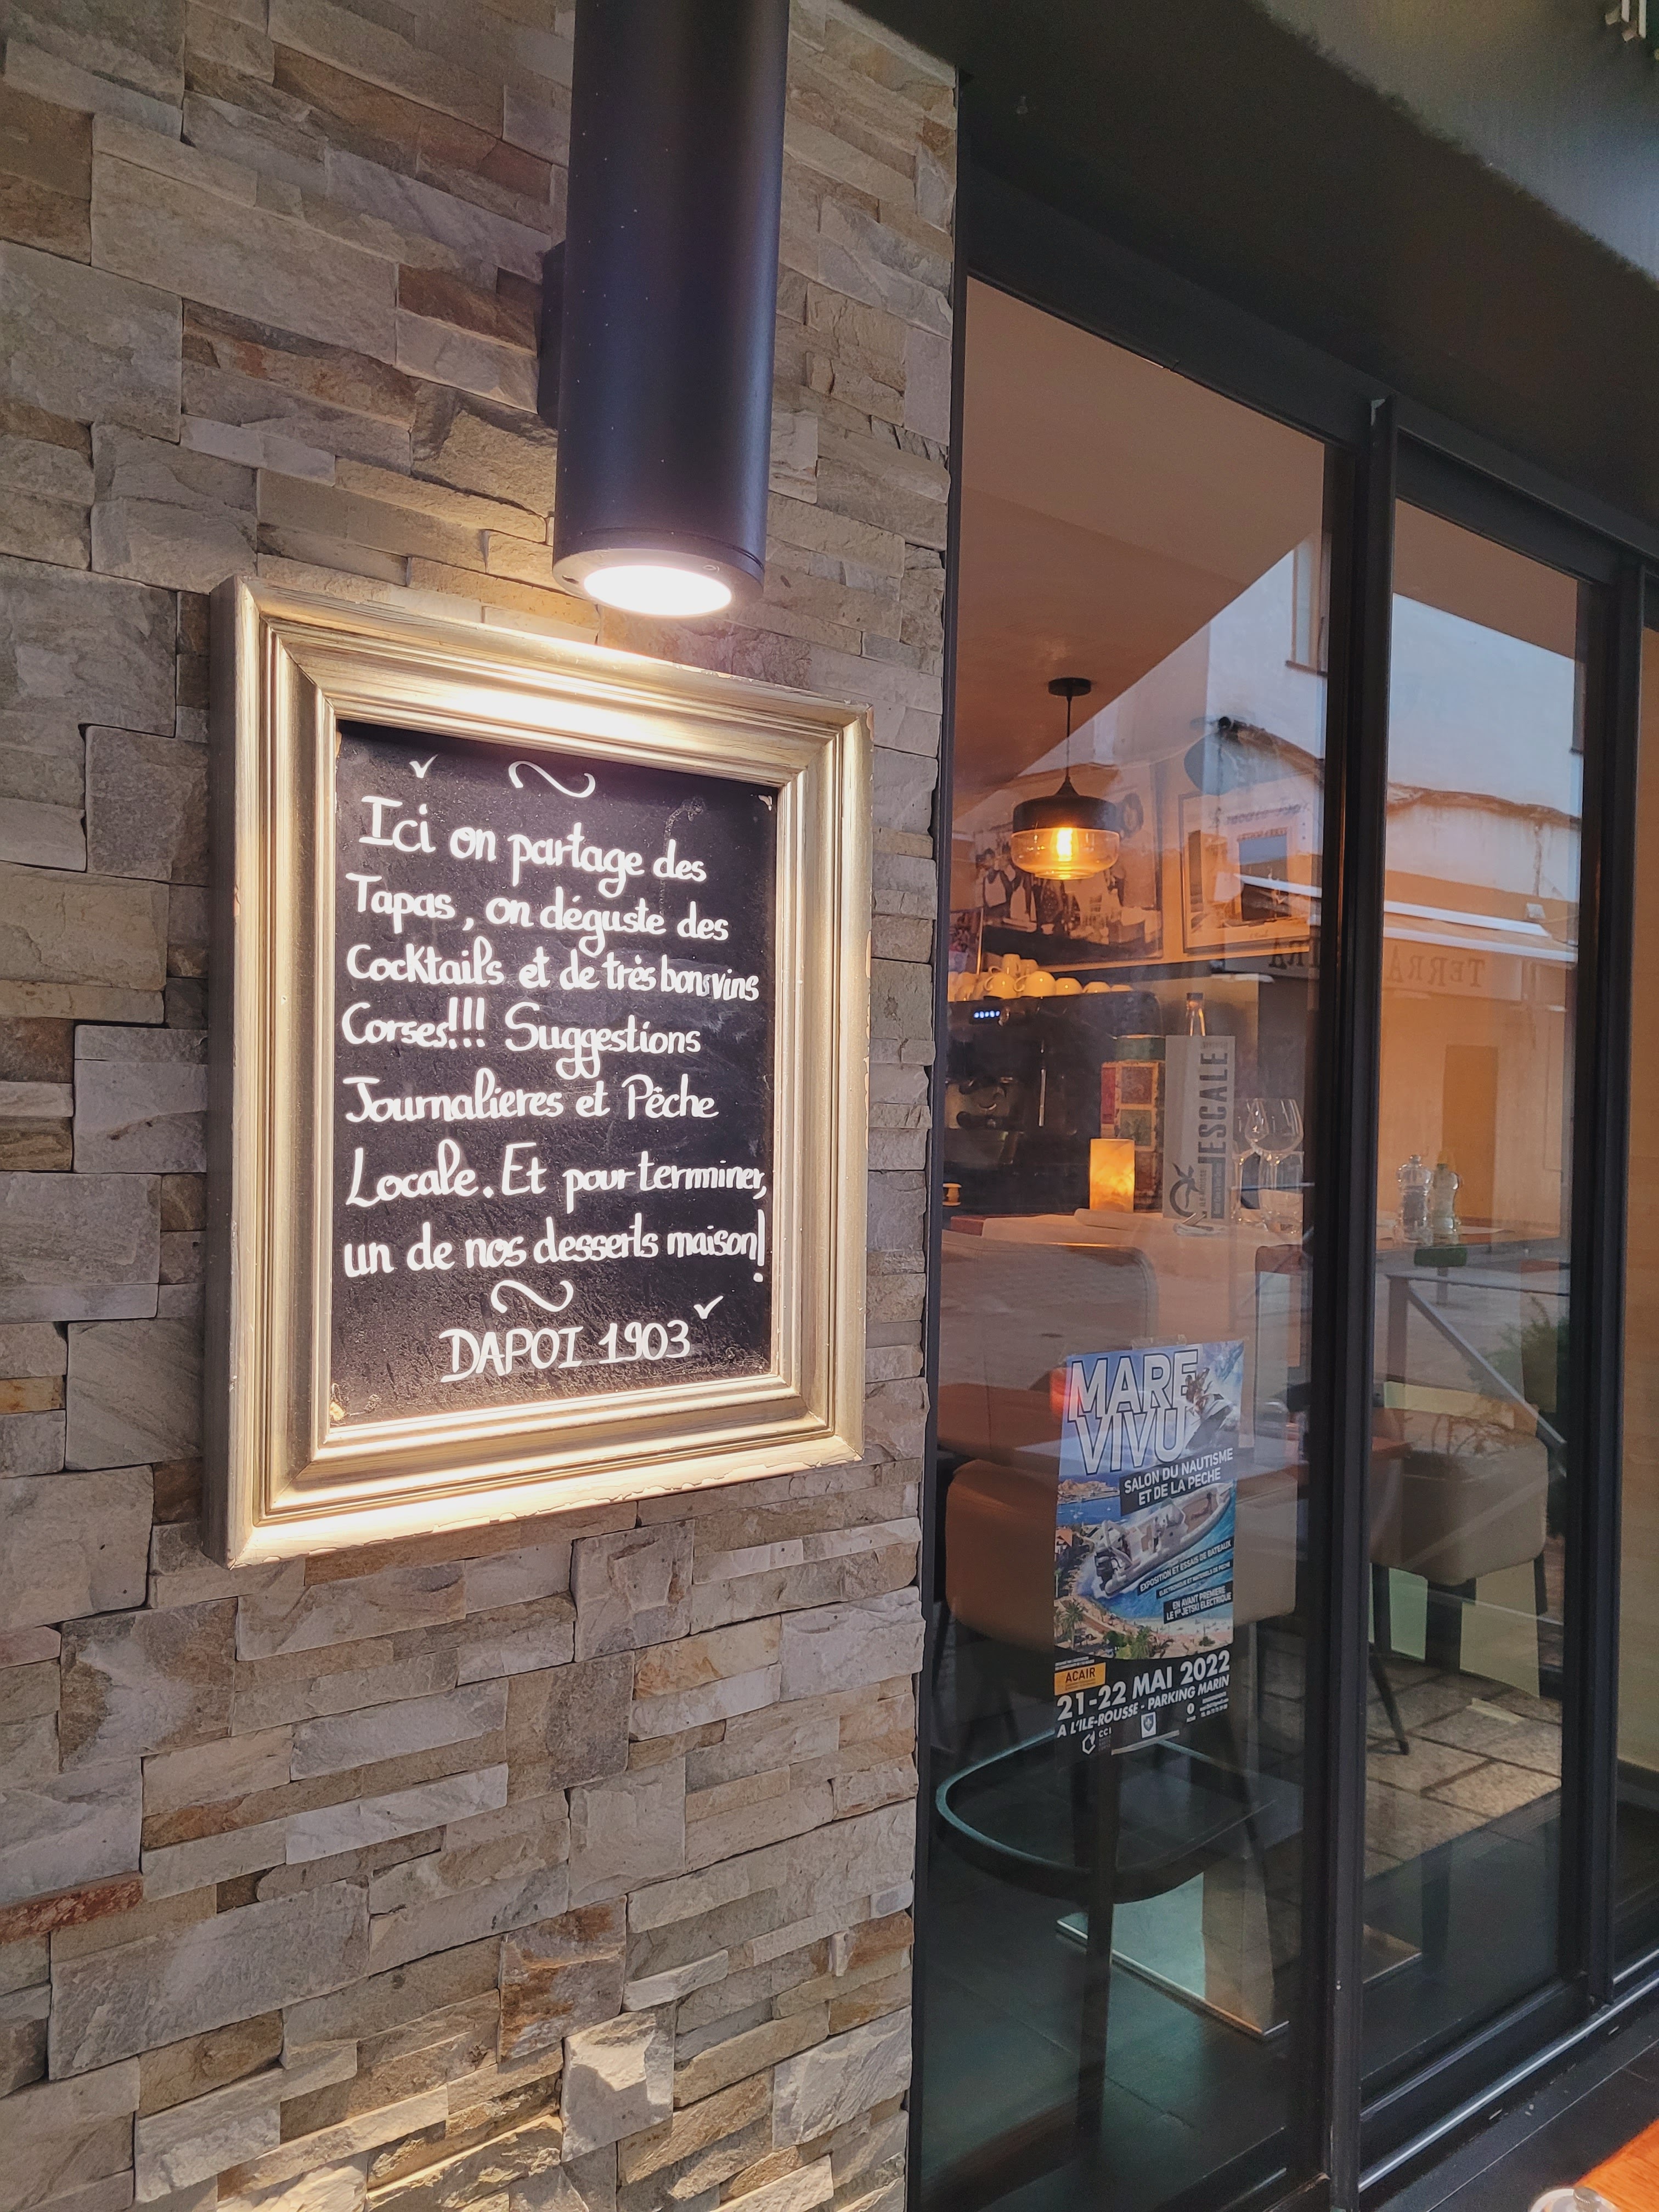 Ici on partage des
Tapas, on déguste des
Cocktails et de très bons vins
Corses!!! Suggestions
Journalieres et Pêche
Locale. Et pour terminer,
un de nos desserts maison!
DAPOI 1903
TERRA
ESCALE
MARE
VIVU
SALON DU NAUTISME
ET DE LA PECHE
EXPOSITION ET ESSAIS DE BATEAUX
ELECTRONIQUE ET MATERIELS DE PECHE
EN AVANT PREMIERE
LE 1ER JETSKI ELECTRIQUE
ACAIR
21-22 MAI 2022
A L'ILE-ROUSSE - PARKING MARIN
CCI